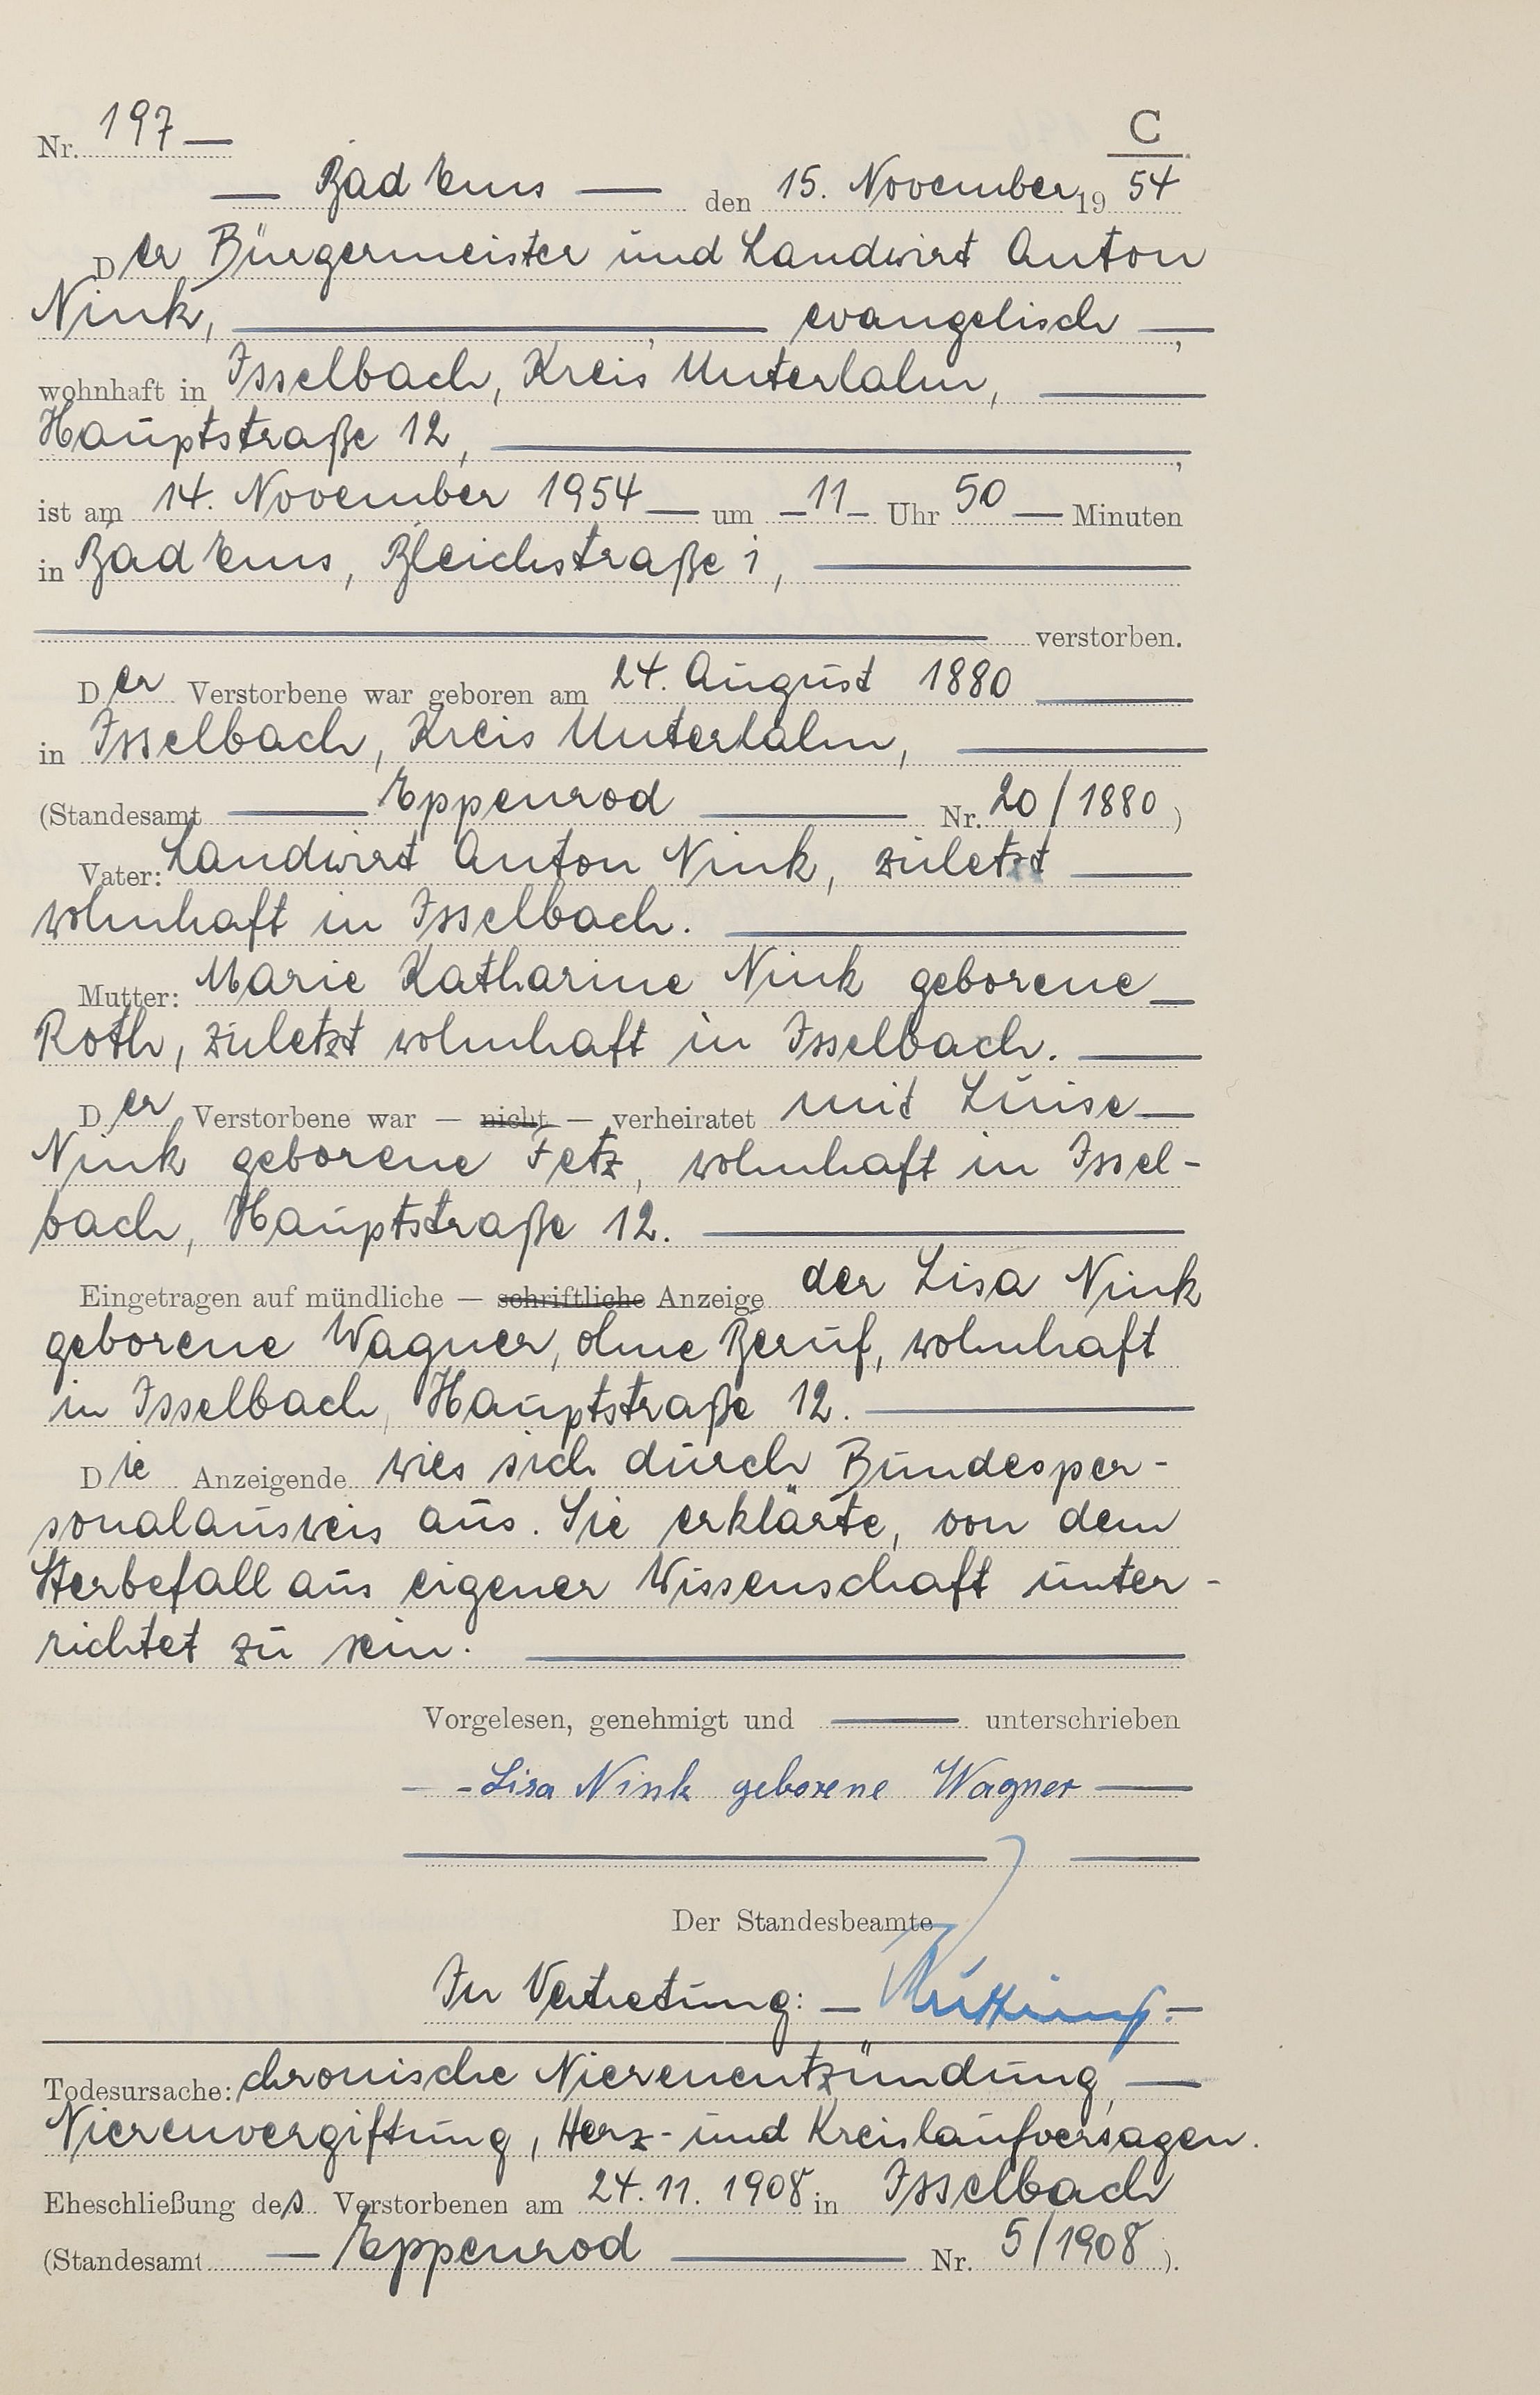 C
Nr. 197
Bad Ems den 15. November 1954
Der Bürgermeister und Landwirt Anton
Nink, evangelisch,
wohnhaft in Isselbach, Kreis Unterlahn,
Hauptstraße 12,
ist am 14. November 1954 um 11 Uhr 50 Minuten
in Bad Ems, Bleichstraße 1,
verstorben.
Der Verstorbene war geboren am 24. August 1880
in Isselbach, Kreis Unterlahn,
(Standesamt Eppenrod Nr. 20/1880)
Vater: Landwirt Anton Nink, zuletzt
wohnhaft in Isselbach.
Mutter: Marie Katharine Nink geborene
Roth, zuletzt wohnhaft in Isselbach.
Der Verstorbene war — nicht — verheiratet mit Luise
Nink geborene Fetz, wohnhaft in Issel-
bach, Hauptstraße 12.
Eingetragen auf mündliche — schriftliche Anzeige der Lisa Nink
geborene Wagner, ohne Beruf, wohnhaft
in Isselbach, Hauptstraße 12.
Die Anzeigende wies sich durch Bundesper-
sonalausweis aus. Sie erklärte, von dem
Sterbefall aus eigener Wissenschaft unter-
richtet zu sein.
Vorgelesen, genehmigt und unterschrieben
Lisa Nink geborene Wagner
Der Standesbeamte
In Vertretung:
Todesursache: chronische Nierenentzündung,
Nierenvergiftung, Herz- und Kreislaufversagen.
Eheschließung des Verstorbenen am 24.11.1908 in Isselbach
(Standesamt Eppenrod Nr. 5/1908).